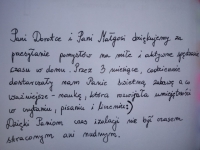 Pani Dorotce i Pani Małgosi dziękujemy za
przesyłanie pomysłów na miłe i aktywne spędzanie
czasu w domu. Przez 3 miesiące, codziennie
dostarczały nam Panie świetną zabawę, a co
ważniejsze - naukę, która rozwijała umiejętności
w czytaniu, pisaniu i liczeniu :)
Dzięki Paniom czas izolacji nie był czasem
straconym ani nudnym.